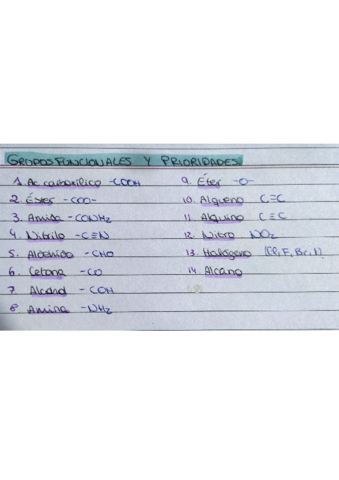 GRUPOS FUNCIONALES Y PRIORIDADES
1. Ac carboxílico -COOH
2. Éster -COO-
3. Amida -CONH2
4. Nitrilo -C≡N
5. Aldehído -CHO
6. Cetona -CO
7. Alcohol -COH
8. Amina -NH2
9. Éter -O-
10. Alqueno C=C
11. Alquino C≡C
12. Nitro NO2
13. Halógeno (Cl, F, Br, I)
14. Alcano